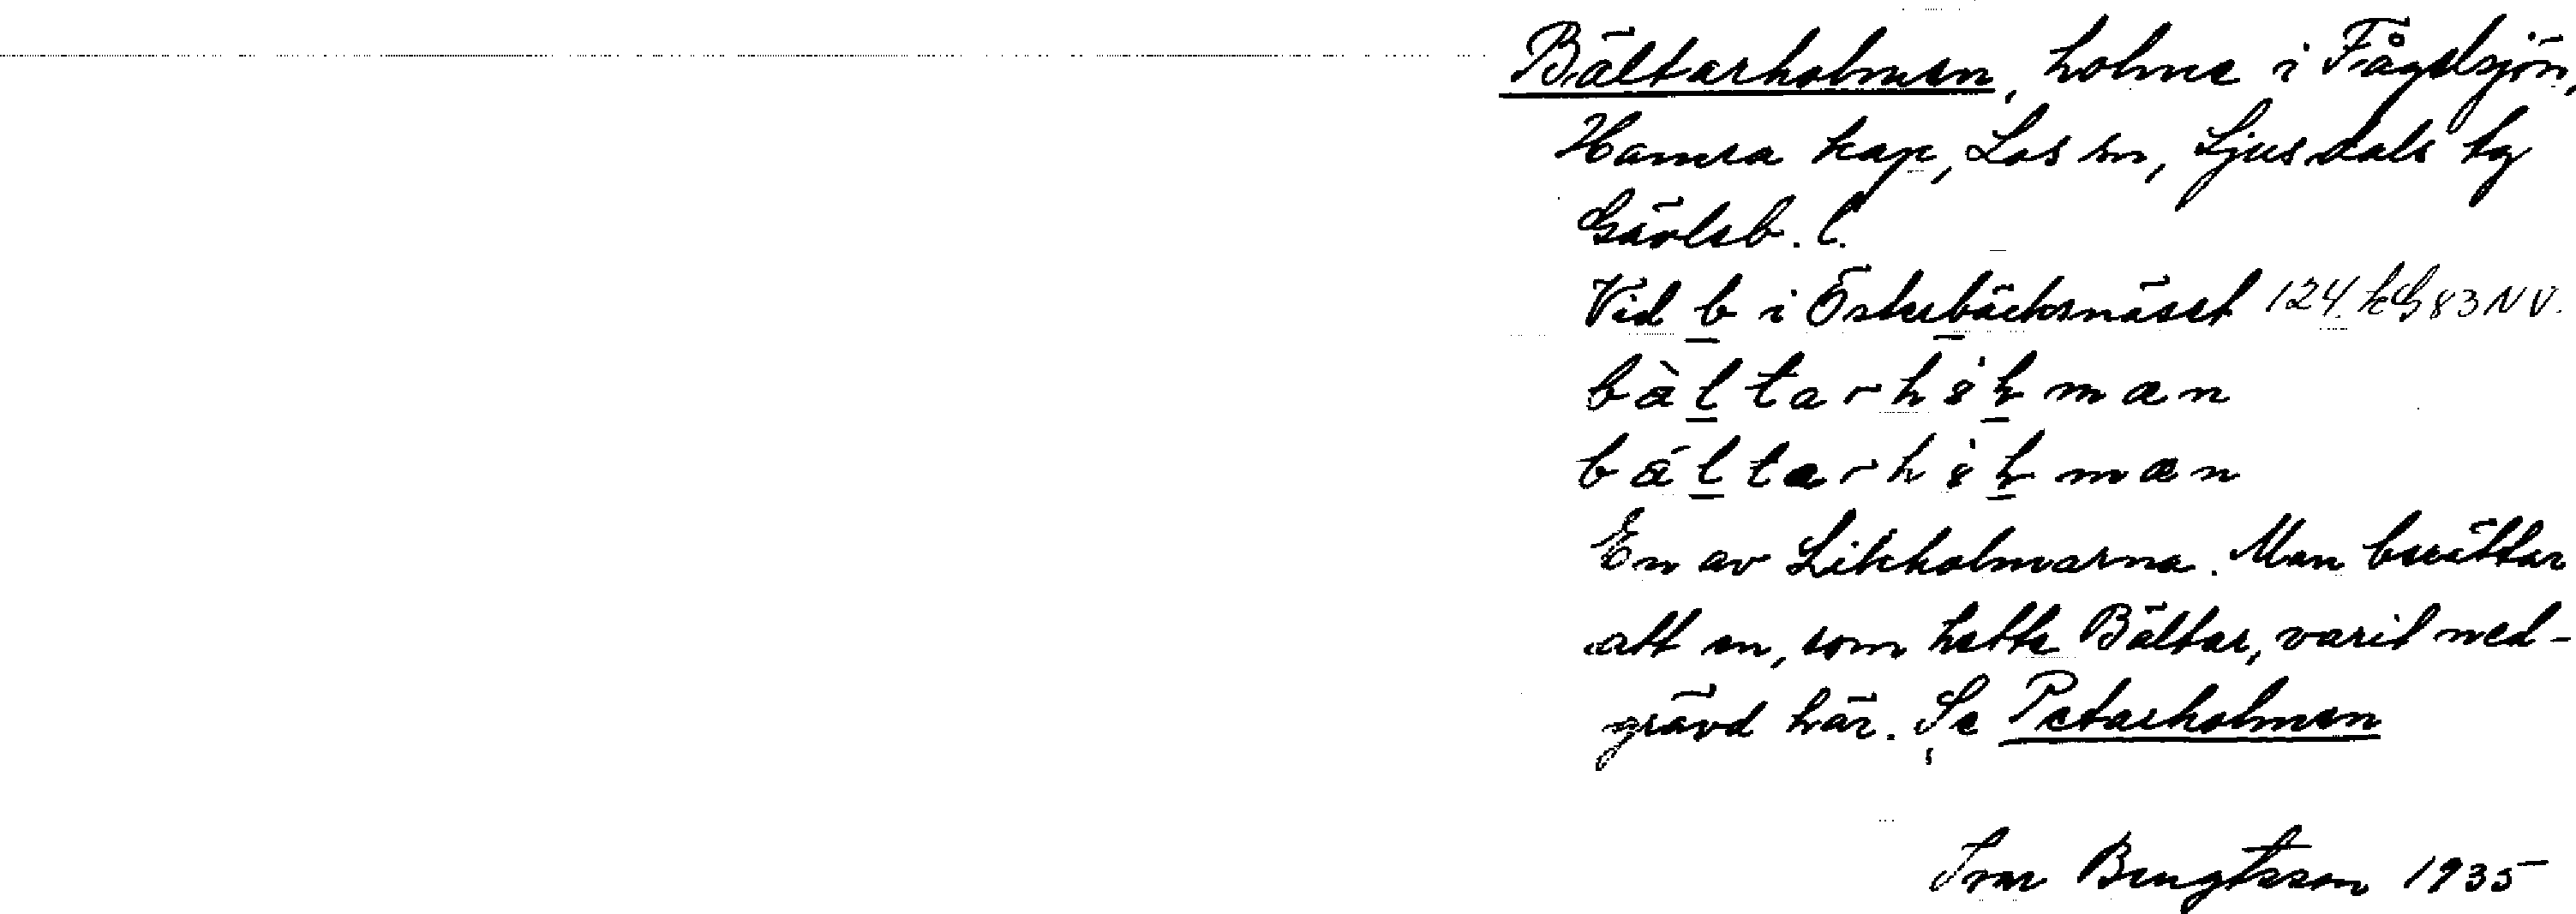 Bältarholmen, holme i Fågelsjön,
Hamra kap, Los sn, Ljusdals tg
Gävleb. l.
Vid b i Österbäcksnäset 124 kG 83 NV.
En av Likholmarna. Man berättar
att en, som hette Bältar, varit ned-
grävd här. Se Petarholmen
Ivar Bengtsson 1935